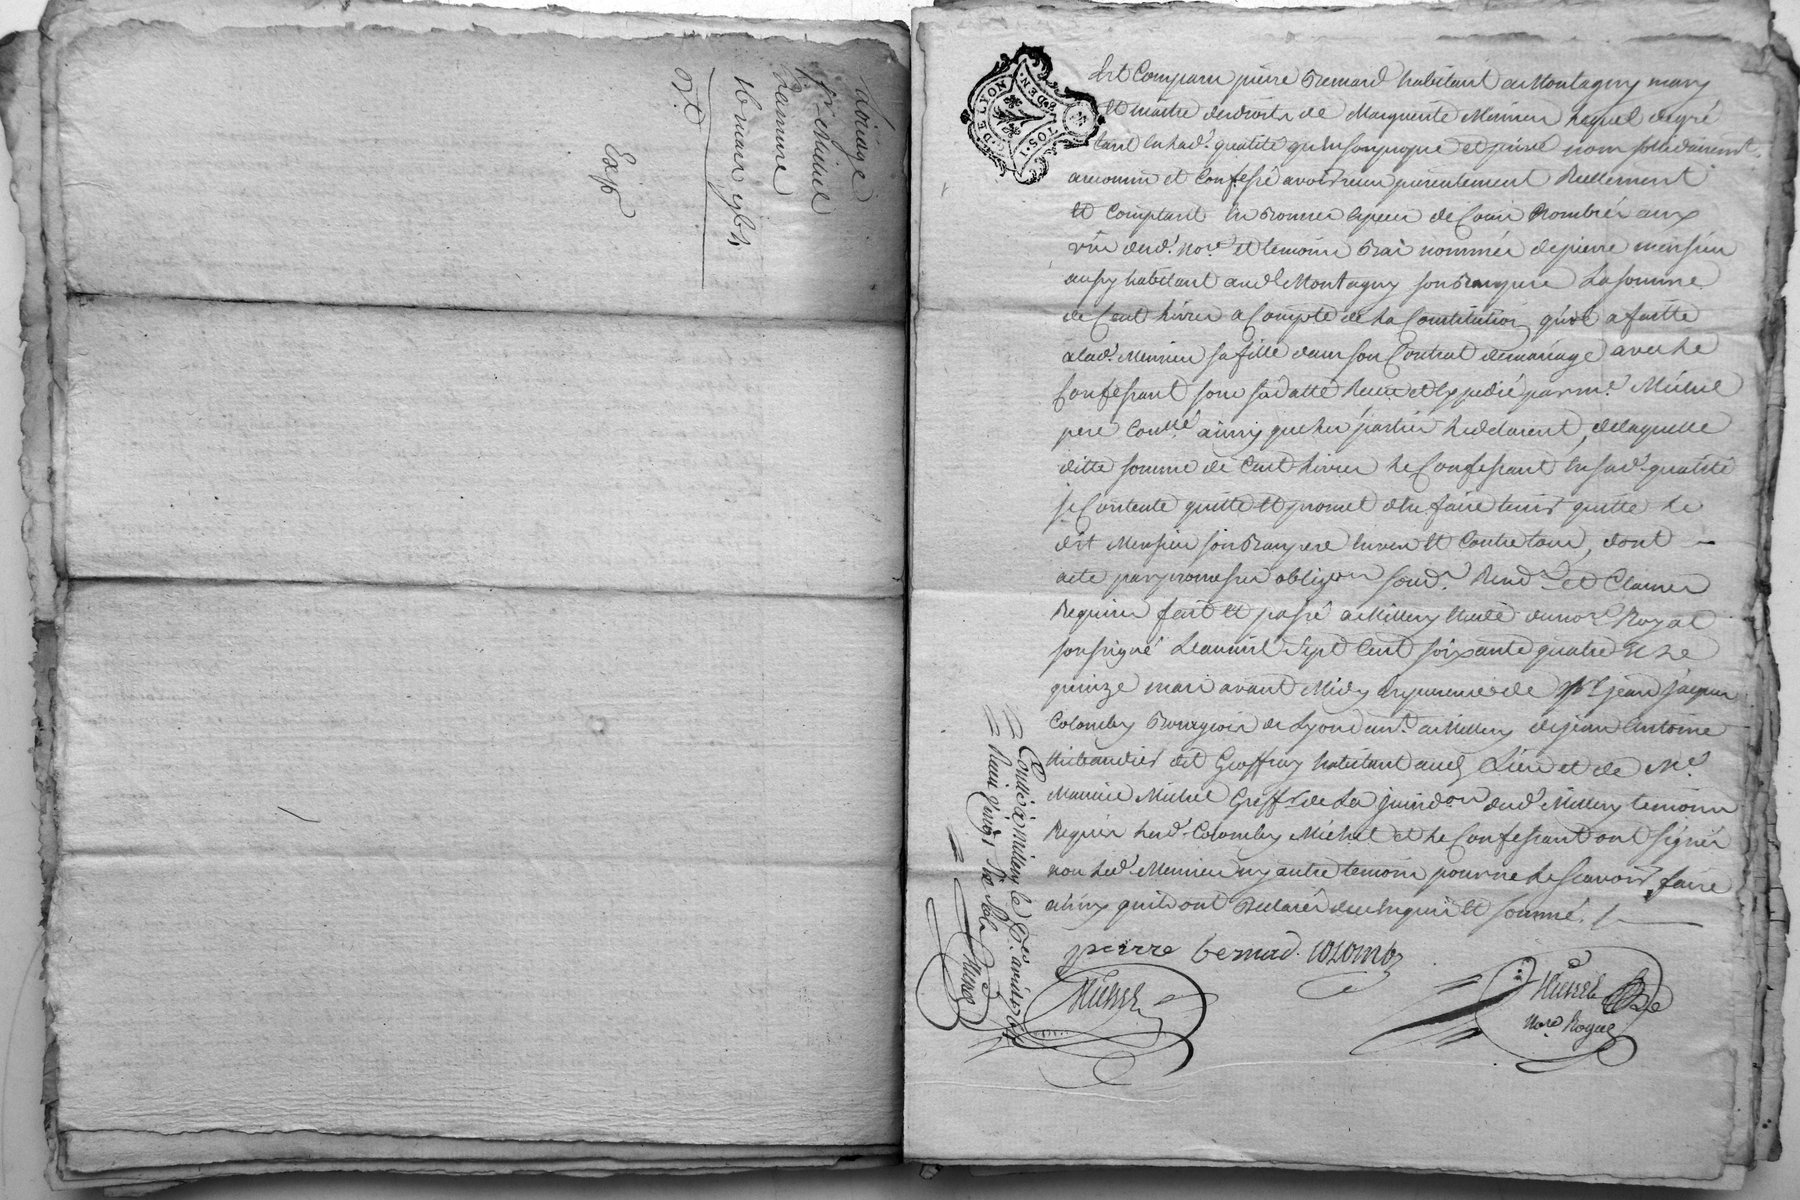 Louage
Michel
16 mars 1764
Exp
G. DE LYON
DEN.
Est Comparu pierre Bernard habitant de Montagny mary
et maitre des droits de Marguerite Mercier lequel de gré
tant en lad. qualité qu'en son propre et privé nom solidairement
a reconnu et Confessé avoir reçu presentement Reellement
et Comptant en bonnes especes de Cours Nombrées aux
vûe dud. nore. et temoins bas nommés de pierre mercier
aussy habitant aud. Montagny son Beaupere La somme
de Cent livres a Compte de la Constitution qu'il a faitte
a lad. Mercier sa fille dans son Contrat de mariage avec le
Confessant sous sa datte Reçu et Expedié par me. Michel
pere ainsy que les parties le declarent, de laquelle
ditte somme de Cent livres le Confessant en sad. qualité
se Contente quitte et promet d'en faire tenir quitte le
dit Mercier son Beaupere envers et Contre tous, dont
acte par promesses obligaon soumd. Rend. et Clauses
Requises fait et passé a Millery Etude du nore. Royal
soussigné L'an mil Sept Cent soixante quatre et Le
quinze mars avant Midy en presence de Sr. jean jacques
Colomby Bourgeois de Lyon demt. a Millery de jean Antoine
Thibaudier dit Geoffray habitant aud. Lieu et de Me.
Maurice Michel Greff. de La jurisdon dud. Millery temoins
Requis led. Colomby Michel et le Confessant ont signés
non led. Mercier ny autre temoin pour ne le scavoir faire
ainsy qu'ils ont Declarés de ce Enquis et sommé.
pierre bernad. colomby
Michel
Michel
Nore. Royal
Conllé à Millery le
Reçu